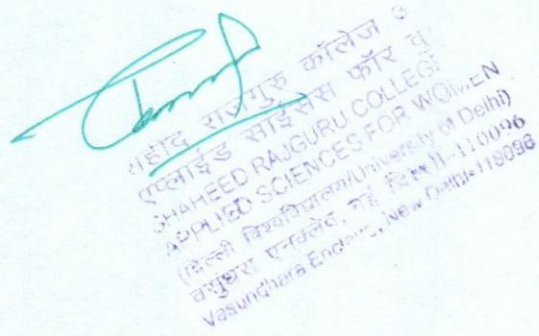 शहीद राजगुरु कॉलेज ऑ
एप्लाईड साईंसेस फॉर वु
SHAHEED RAJGURU COLLEGE
APPLIED SCIENCES FOR WOMEN
(दिल्ली विश्वविद्यालय/University of Delhi)
वसुंधरा एन्क्लेव, नई दिल्ली-110096
Vasundhara Enclave, New Delhi-110096